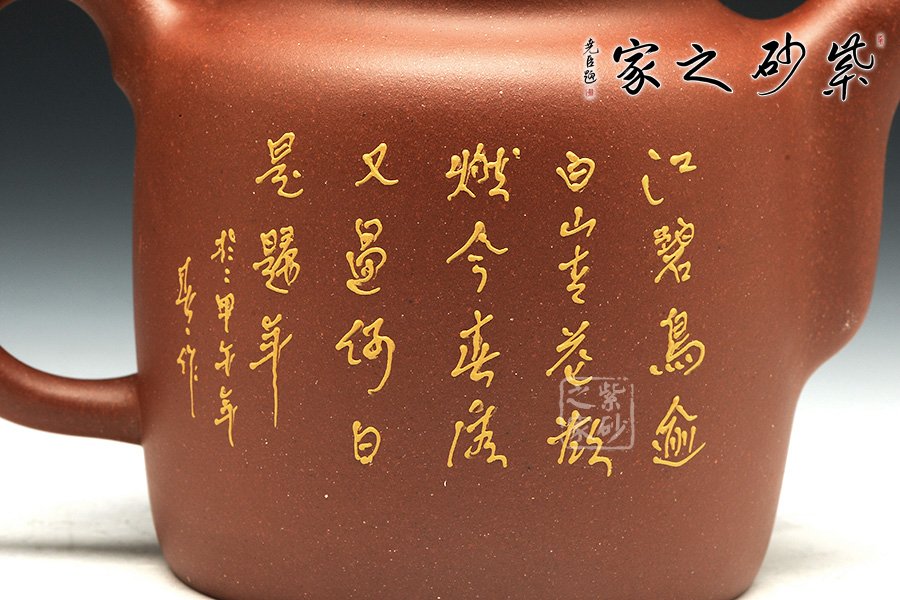 紫砂之家
堯臣題
江碧鳥逾
白山青花欲
燃今春
又過何日
是歸年
於甲午年
作
紫砂
之家